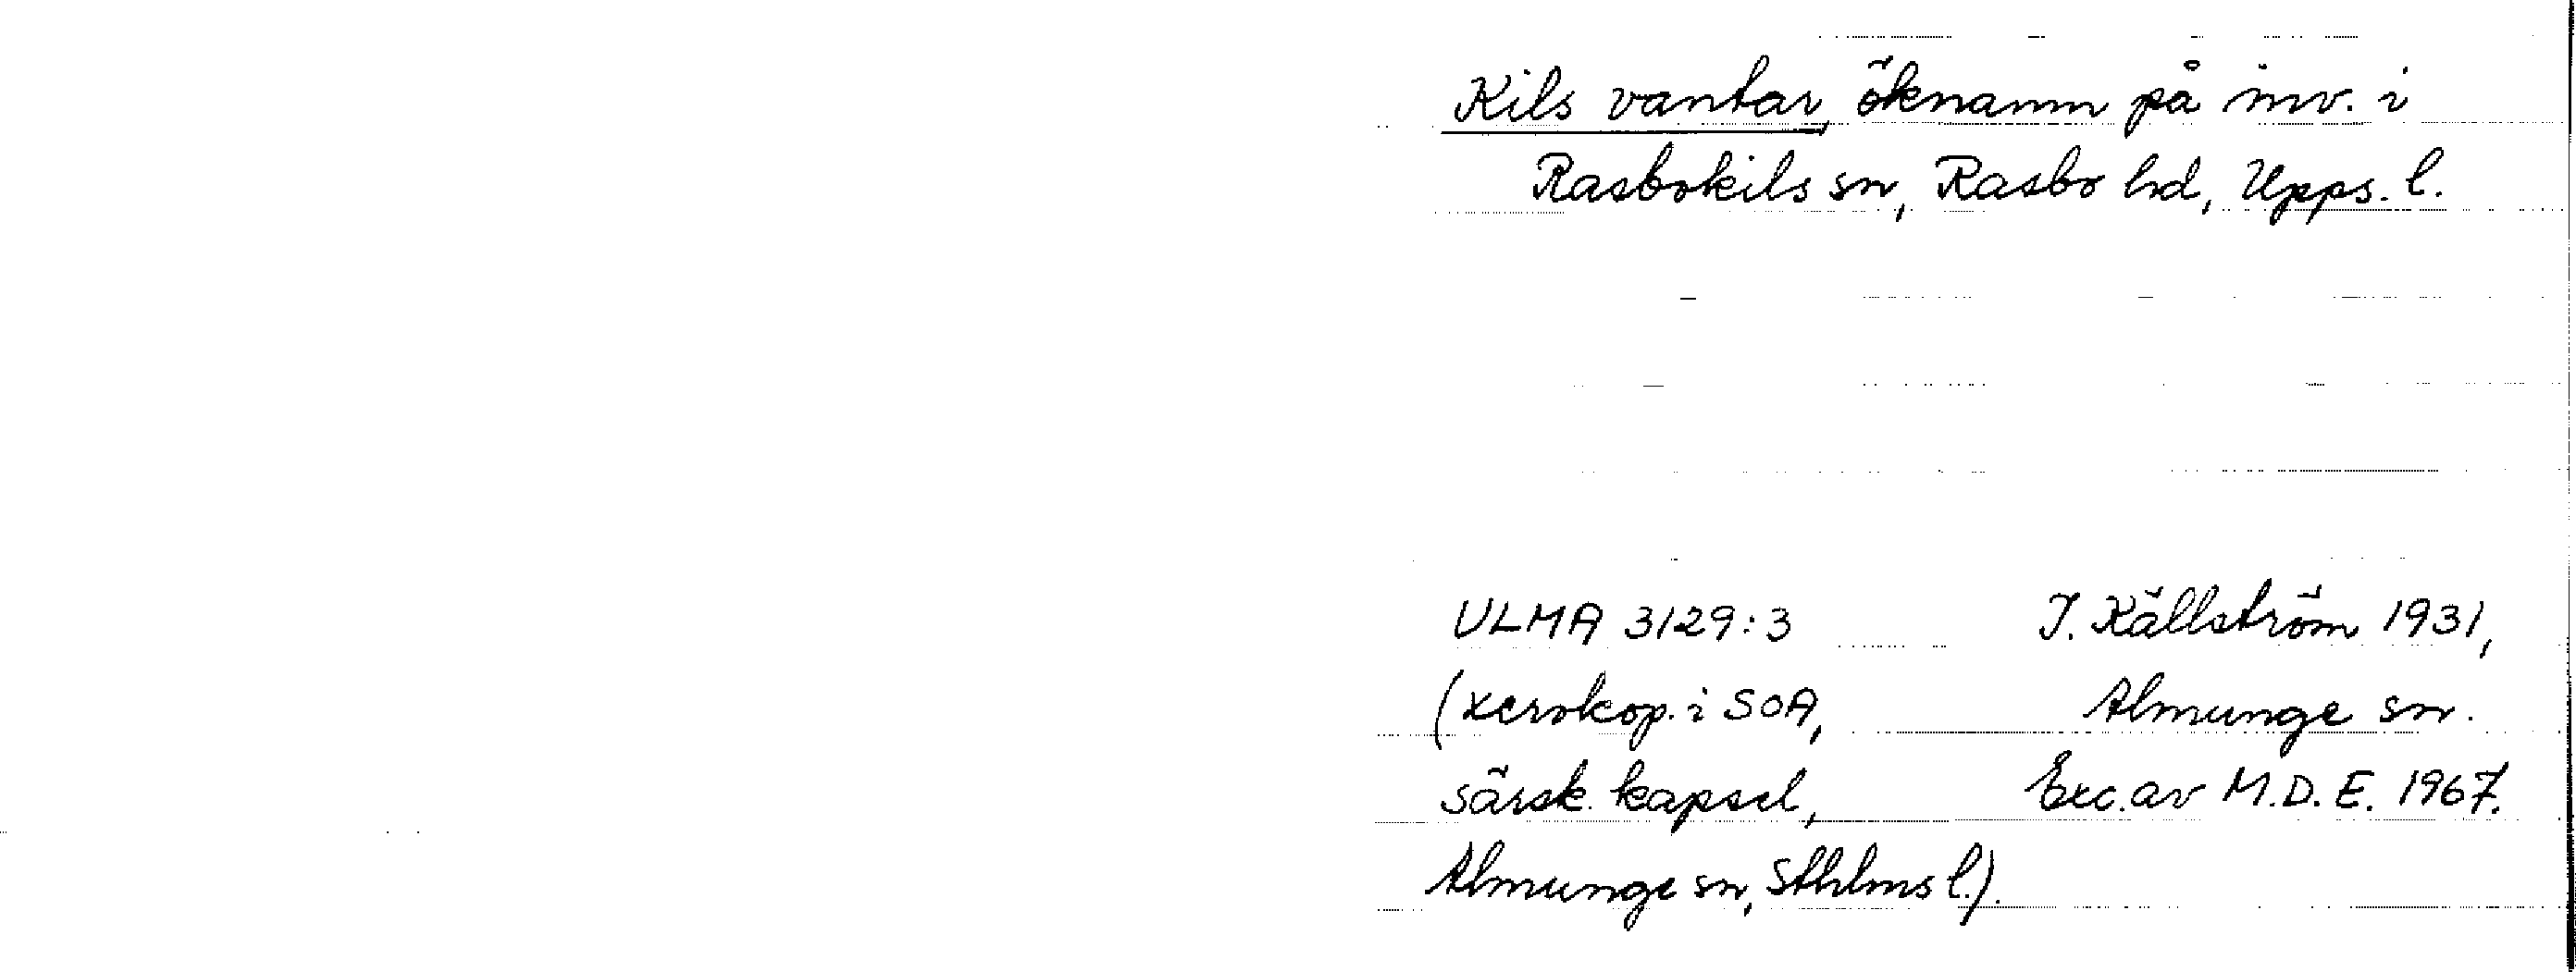 Kils vantar, öknamn på inv. i
Rasbokils sn, Rasbo hd, Upps. l.
ULMA 3129:3 J. Källström 1931,
(xerokop. i SOA, Almunge sn.
särsk. kapsel, Exc. av M.D.E. 1967.
Almunge sn, Sthlms l.).